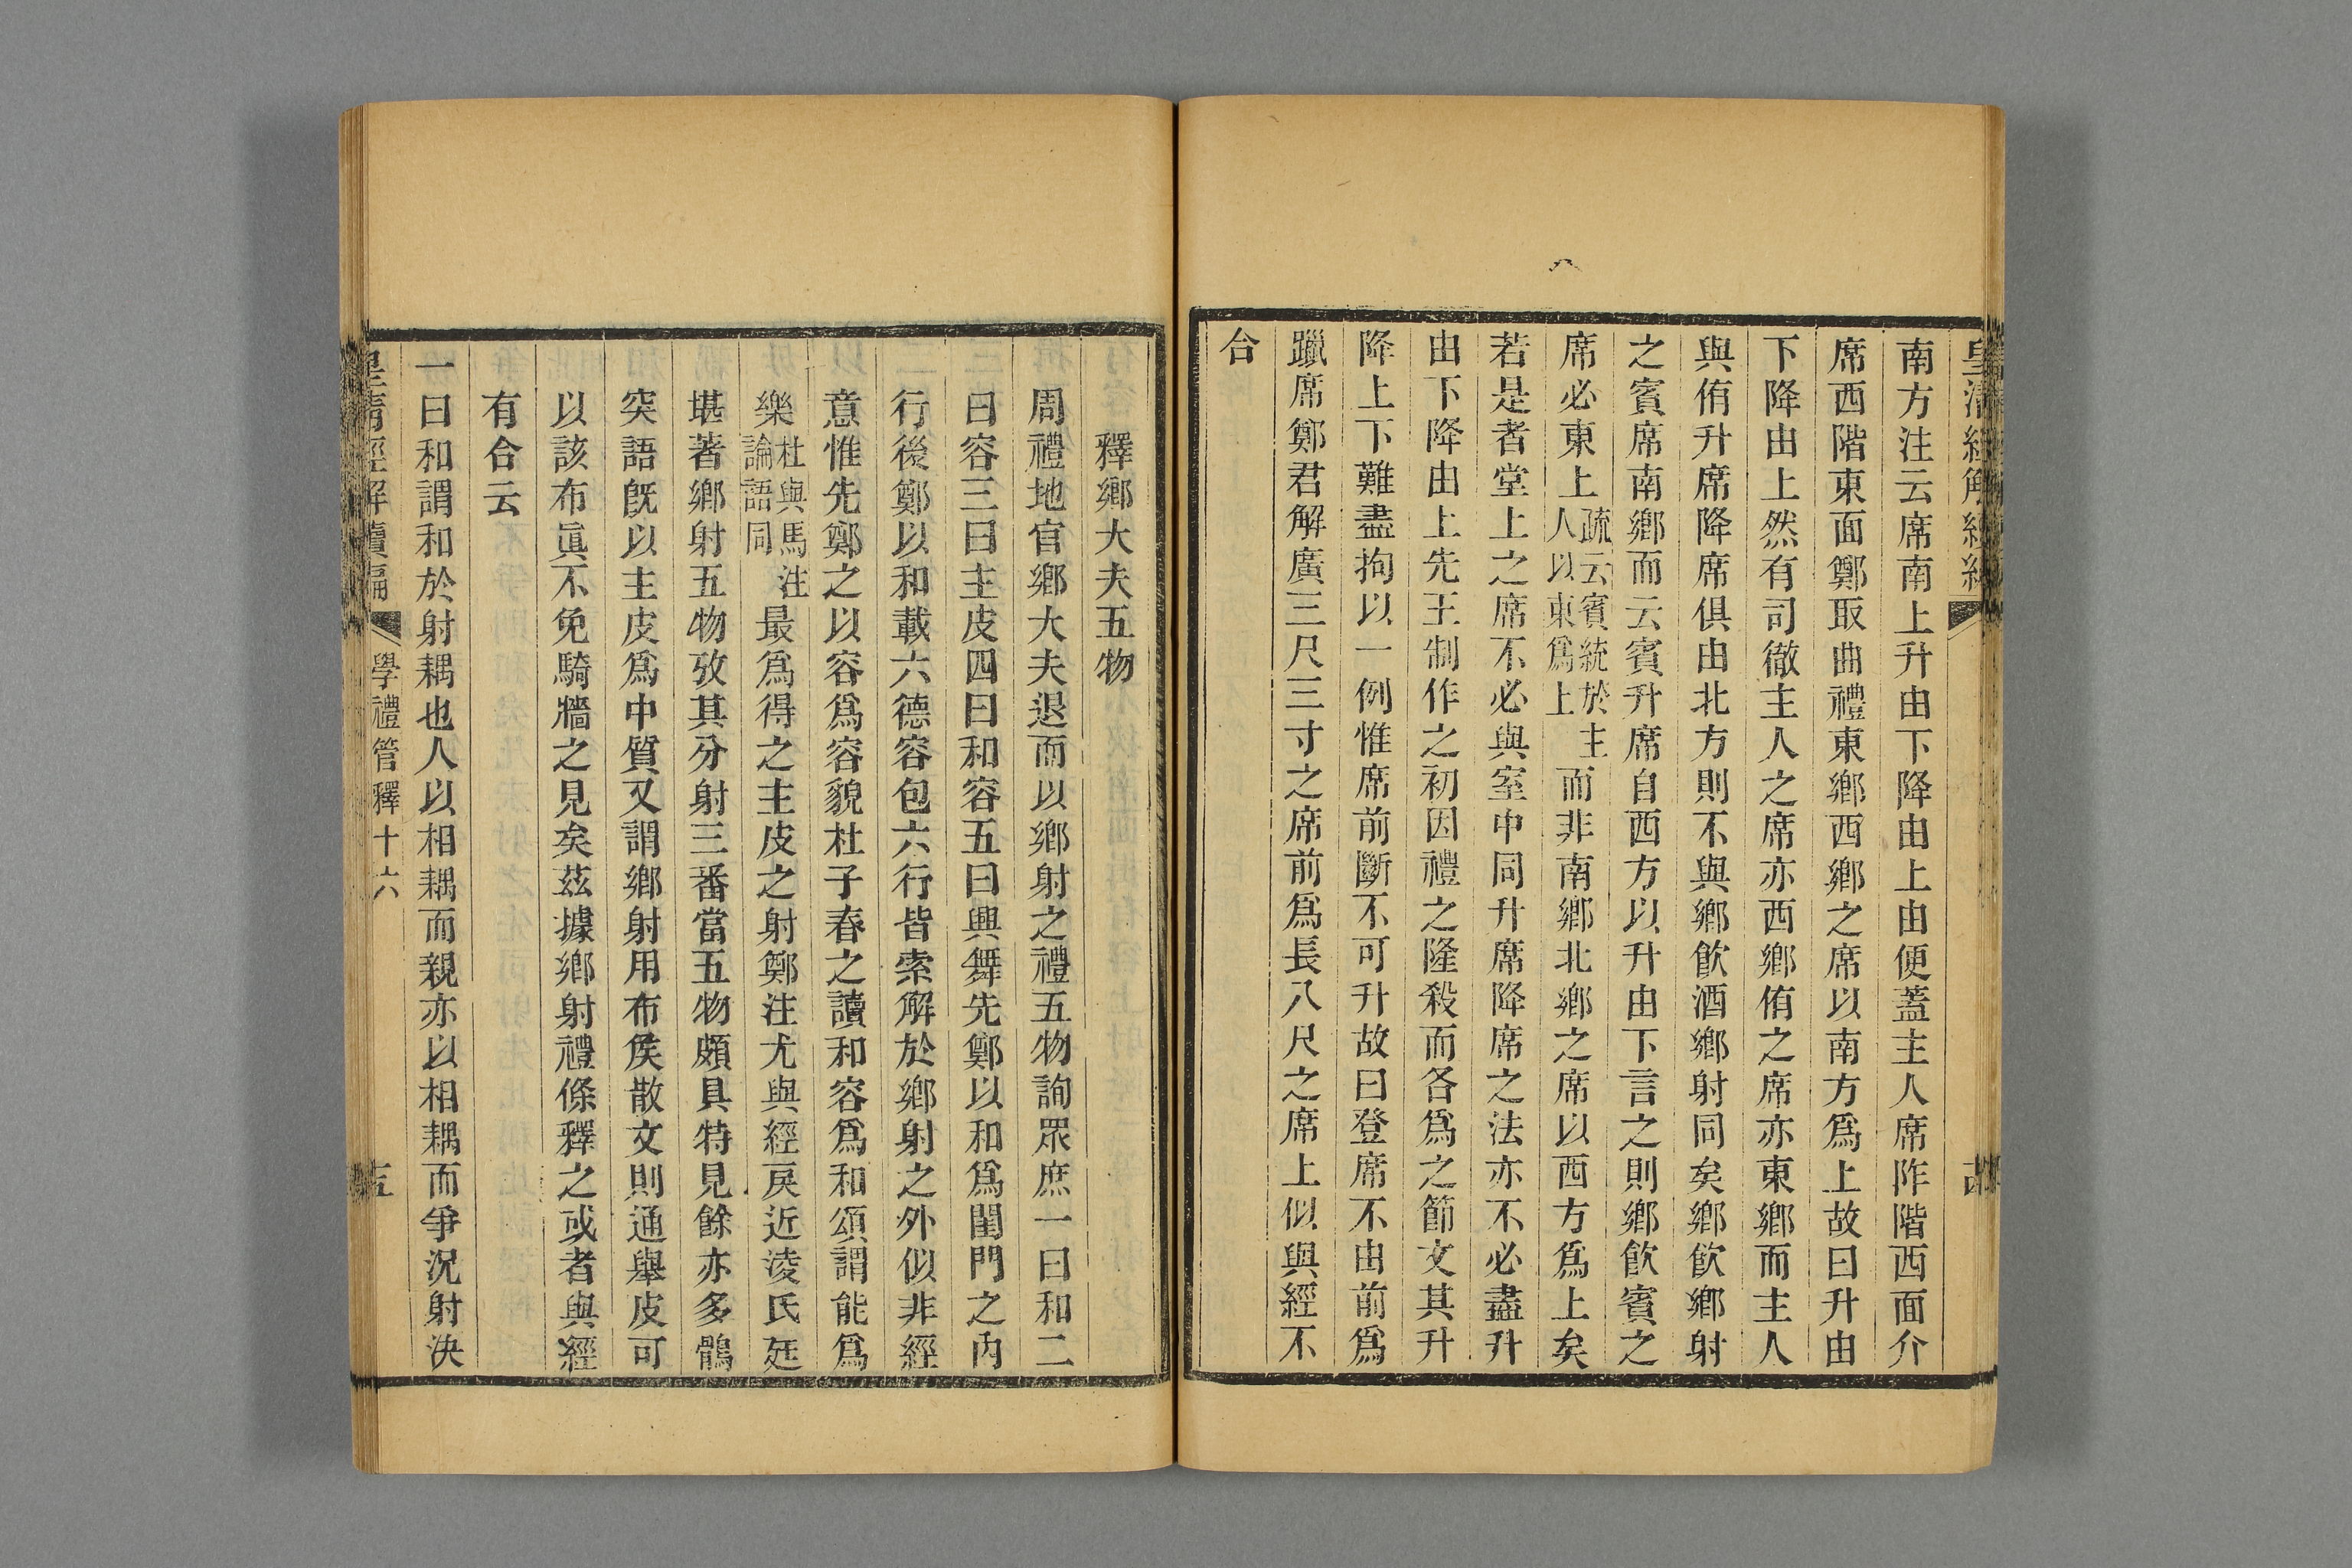 南方注云席南上升由下降由上由便蓋主人席阼階西面介
席西階東面鄭取曲禮東鄉西鄉之席以南方爲上故曰升由
下降由上然有司徹主人之席亦西鄉侑之席亦東鄉而主人
與侑升席降席俱由北方則不與鄉飲酒鄉射同矣鄉飲鄉射
之賓席南鄉而云賓升席自西方以升由下言之則鄉飲賓之
席必東上疏云賓統於主人以東爲上而非南鄉北鄉之席以西方爲上矣
若是者堂上之席不必與室中同升席降席之法亦不必盡升
由下降由上先王制作之初因禮之隆殺而各爲之節文其升
降上下難盡拘以一例惟席前斷不可升故曰登席不由前爲
躐席鄭君解廣三尺三寸之席前爲長八尺之席上似與經不
合
釋鄉大夫五物
周禮地官鄉大夫退而以鄉射之禮五物詢眾庶一曰和二
曰容三曰主皮四曰和容五曰興舞先鄭以和爲閨門之內
行後鄭以和載六德容包六行皆索解於鄉射之外似非經
意惟先鄭之以容爲容貌杜子春之讀和容爲和頌謂能爲
樂杜與馬注論語同最爲得之主皮之射鄭注尤與經戾近淩氏廷
堪著鄉射五物攷其分射三番當五物頗具特見餘亦多鶻
突語旣以主皮爲中質又謂鄉射用布侯散文則通舉皮可
以該布眞不免騎牆之見矣茲據鄉射禮條釋之或者與經
有合云
一曰和謂和於射耦也人以相耦而親亦以相耦而爭況射決
皇清經解續編
學禮管釋十六